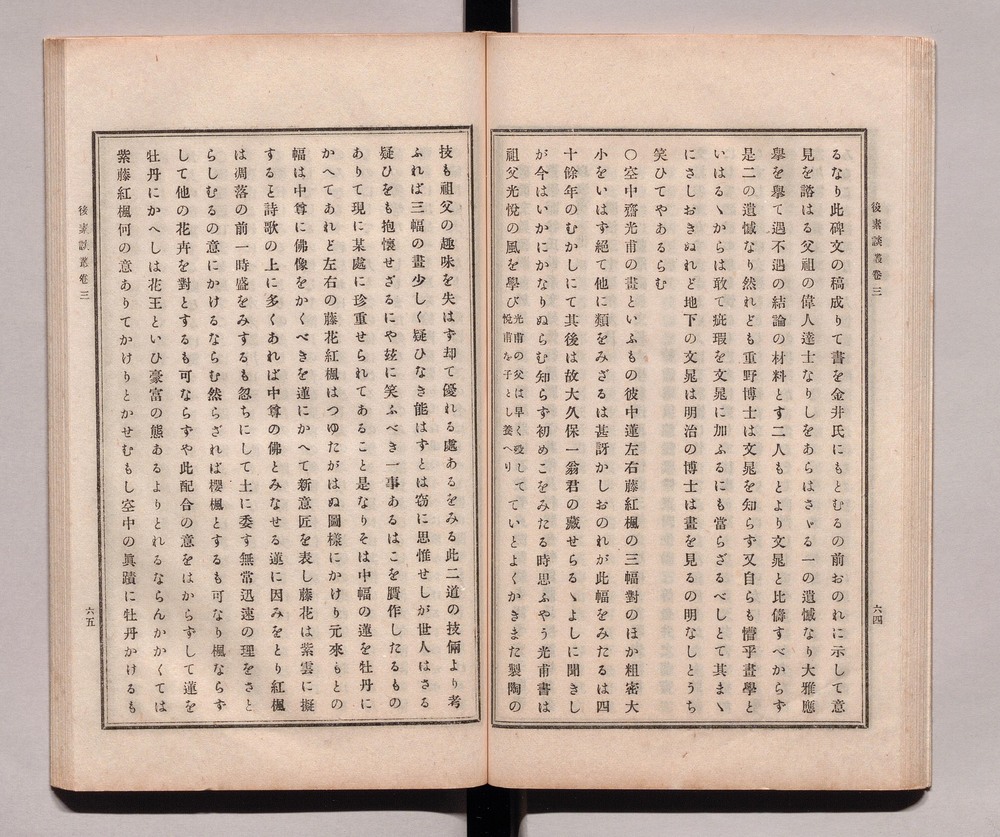 後素談叢卷三
六四
るなり此碑文の稿成りて書を金井氏にもとむるの前おのれに示して意
見を諮はる父祖の偉人達士なりしをあらはさゞる一の遺憾なり大雅應
擧を擧て遇不遇の結論の材料とす二人もとより文晁と比儔すべからず
是二の遺憾なり然れども重野博士は文晁を知らず又自らも懵乎畫學と
いはるゝからは敢て疵瑕を文晁に加ふるにも當らざるべしとて其まゝ
にさしおきぬれど地下の文晁は明治の博士は畫を見るの明なしとうち
笑ひてやあるらむ
○空中齋光甫の畫といふもの彼中蓮左右藤紅楓の三幅對のほか粗密大
小をいはず絕て他に類をみざるは甚訝かしおのれが此幅をみたるは四
十餘年のむかしにて其後は故大久保一翁君の藏せらるゝよしに聞きし
が今はいかにかなりぬらむ知らず初めこをみたる時思ふやう光甫書は
祖父光悅の風を學び光甫の父は早く歿して悅甫を子とし養へりていとよくかきまた製陶の
技も祖父の趣味を失はす却て優れる處あるをみる此二道の技倆より考
ふれば三幅の畫少しく疑ひなき能はすとは窃に思惟せしが世人はさる
疑ひをも抱懷せざるにや玆に笑ふべき一事あるはこを贋作したるもの
ありて現に某處に珍重せられてあること是なりそは中幅の蓮を牡丹に
かへてあれど左右の藤花紅楓はつゆたがはぬ圖樣にかけり元來もとの
幅は中尊に佛像をかくべきを蓮にかへて新意匠を表し藤花は紫雲に擬
すると詩歌の上に多くあれば中尊の佛とみなせる蓮に因みをとり紅楓
は凋落の前一時盛をみするも忽ちにして土に委す無常迅速の理をさと
らしむるの意にかけるならむ然らざれば櫻楓とするも可なり楓ならず
して他の花卉を對とするも可ならずや此配合の意をはからずして蓮を
牡丹にかへしは花王といひ豪富の態あるよりとれるならんかかくては
紫藤紅楓何の意ありてかけりとかせむもし空中の眞蹟に牡丹かけるも
後素談叢卷三
六五